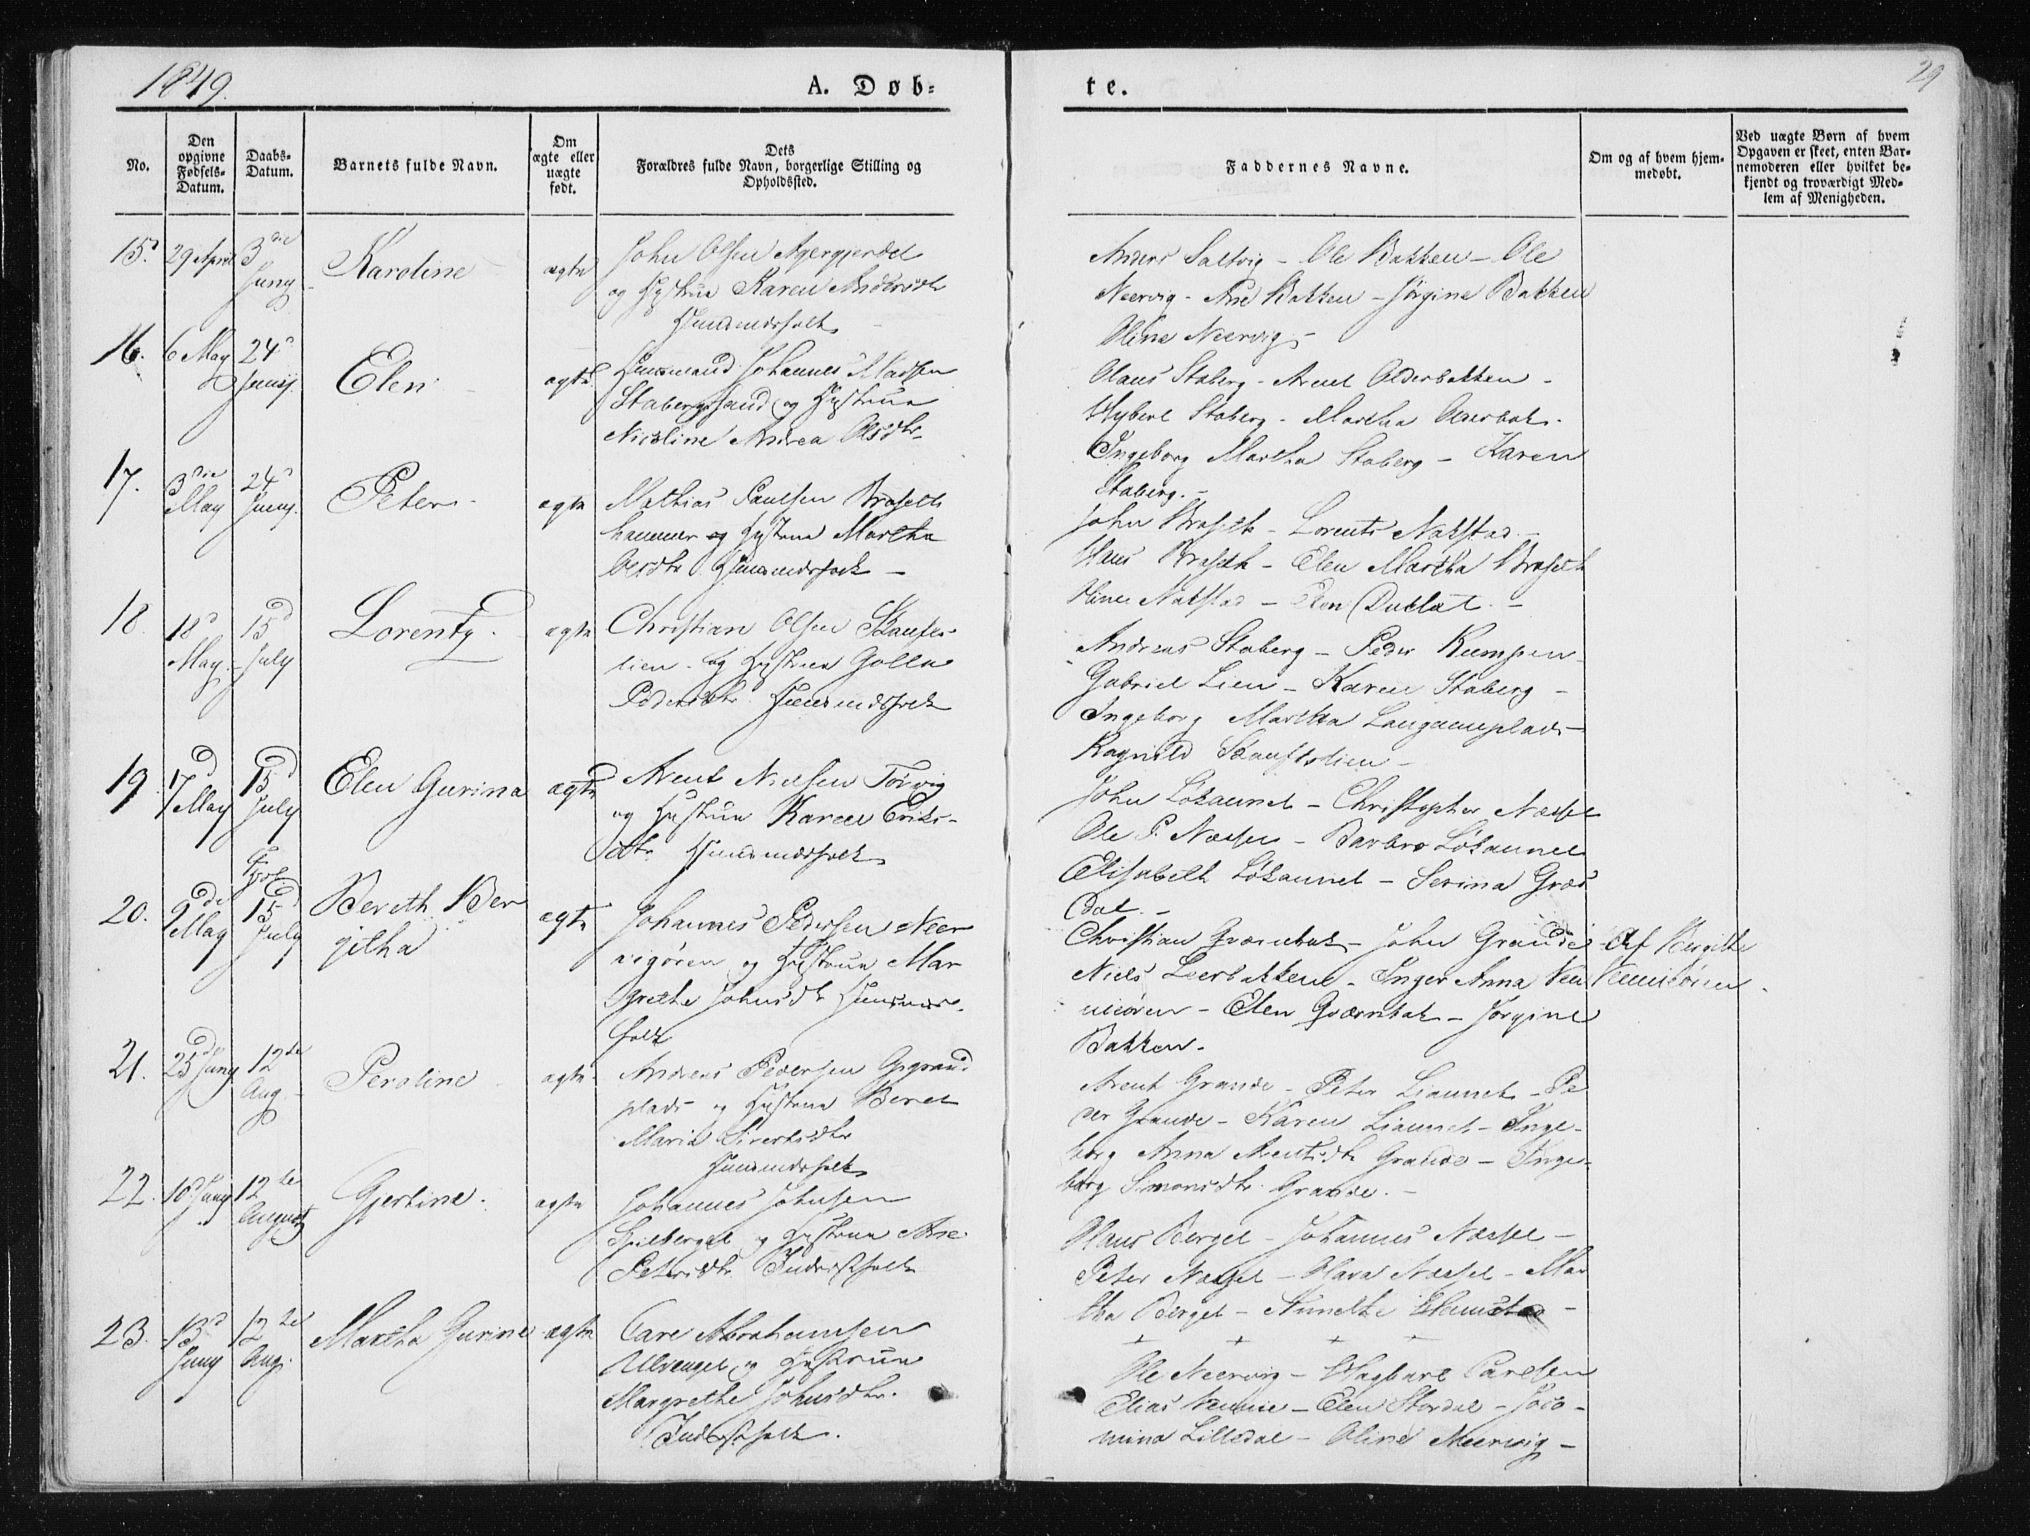 1849.
A. Døb=
te.
29
No.
Den opgivne Fødsels-Datum.
Daabs-Datum.
Barnets fulde Navn.
Om ægte eller uægte født.
Dets Forældres fulde Navn, borgerlige Stilling og Opholdssted.
Faddernes Navne.
Om og af hvem hjem-medøbt.
Ved uægte Børn af hvem Opgaven er skeet, enten Bar-nemoderen eller hvilket be-kjendt og troværdigt Med-lem af Menigheden.
15. 29 April 3die Juny Karoline ægte
John Olsen
og Hustrue Karen
Huusmandsfolk
Anders Saltvig - Ole Bakken - Ole
Neervig - Ane Bakken - Jørgine Bakken
Oline Neervig -
16. 6 May 24d Junij. Elen ægte
Huusmand Johannes Madsen
og Hustrue
Nicoline Andrea Olsdtr.
Olaus Staberg - Arent Olderbakken -
Staberg - Martha
Ingeborg Martha Staberg - Karen
Staberg. -
17. 3die May 24d Juny. Peter ægte
Mathias Paulsen Braseth
hammer og Hustrue Martha
Olsdtr. Huusmdsfolk -
John Braseth - Lorents Nakstad -
Hans Braseth - Elen Martha Braseth
Nakstad - Elen
18. 18d May. 15d July Lorentz. ægte
Christian Olsen
lien - og Hustrue
Pedersdtr. Huusmdsfolk
Andreas Staberg - Peder
Gabriel Lien - Karen Staberg -
Ingeborg Martha
Ragnild
19. 17d May 15d July Elen Gurina ægte
Arent Nielsen Torvig
og Hustrue Karen Eriks-
dtr. Huusmdsfolk
John Løkaunet - Christopher Næsset
Ole P. Næsset - Barbro Løkaunet
Elisabeth Løkaunet - Serina Græs
dal. -
20. 9de May 15d July Bereth Ber
githa ægte
Johannes Pedersen Neer
vigøren og Hustrue Mar
grethe Johnsdtr. Huusmds-
folk
Christian Qværnbak - John Grande
Niels Leerbakken - Inger Anna Ven
nesøren - Elen Qværnbak - Jørgine
Bakken -
Af Birgitte
21. 25d Juny 12te Aug. Peroline ægte
Andreas Pedersen
plads og Hustrue Beret
Maria Sivertsdtr.
Huusmdsfolk
Arent Grande - Peter Liaunet - Pe
der Grande - Karen Liaunet - Inge-
borg Anna Arentsdtr. Grande - Inge-
borg Simonsdtr. Grande. -
22. 10d Juny 12te August Gjertine. ægte
Johannes Johnsen
og Hustrue Ane
Petersdtr. Inderstfolk
Hans Berget - Johannes Næsset -
Peter Næsset - Næsset - Mar
tha Berget - Annethe
+ + + +
23. 13d Juny 12te Aug. Martha Gurine ægte
Abrahamsen
Ulvenget og Hustrue
Margrethe Johnsdtr.
Inderstfolk.
Ole Neervig - Hagbart
Elias - Elen Stordal - Jaco-
mina Lilledal - Oline Neervig -